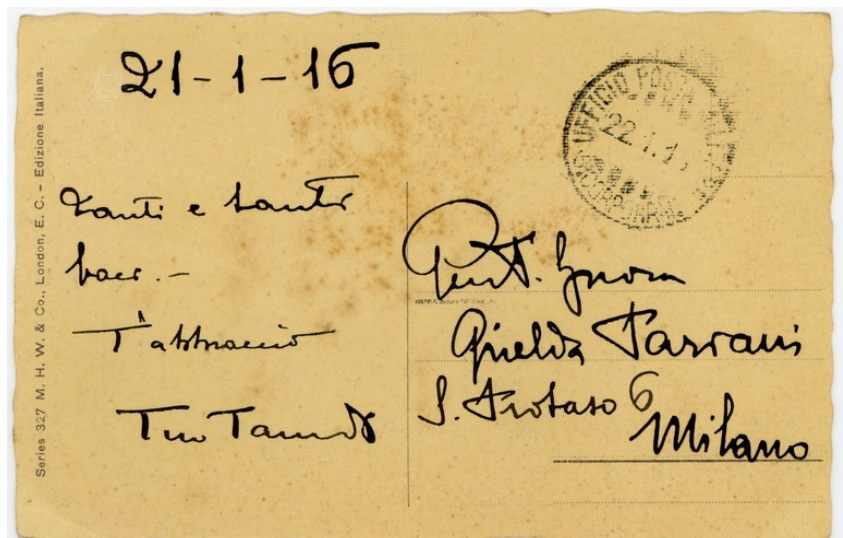 Series 327 M. H. W. & Co., London, E. C. – Edizione Italiana.
21-1-16
Tanti e tanti
baci.-
T'abbraccio
Tuo
UFFICIO POSTA
22.1.1
Gent. Signora
Griselda
S. Protaso 6
Milano